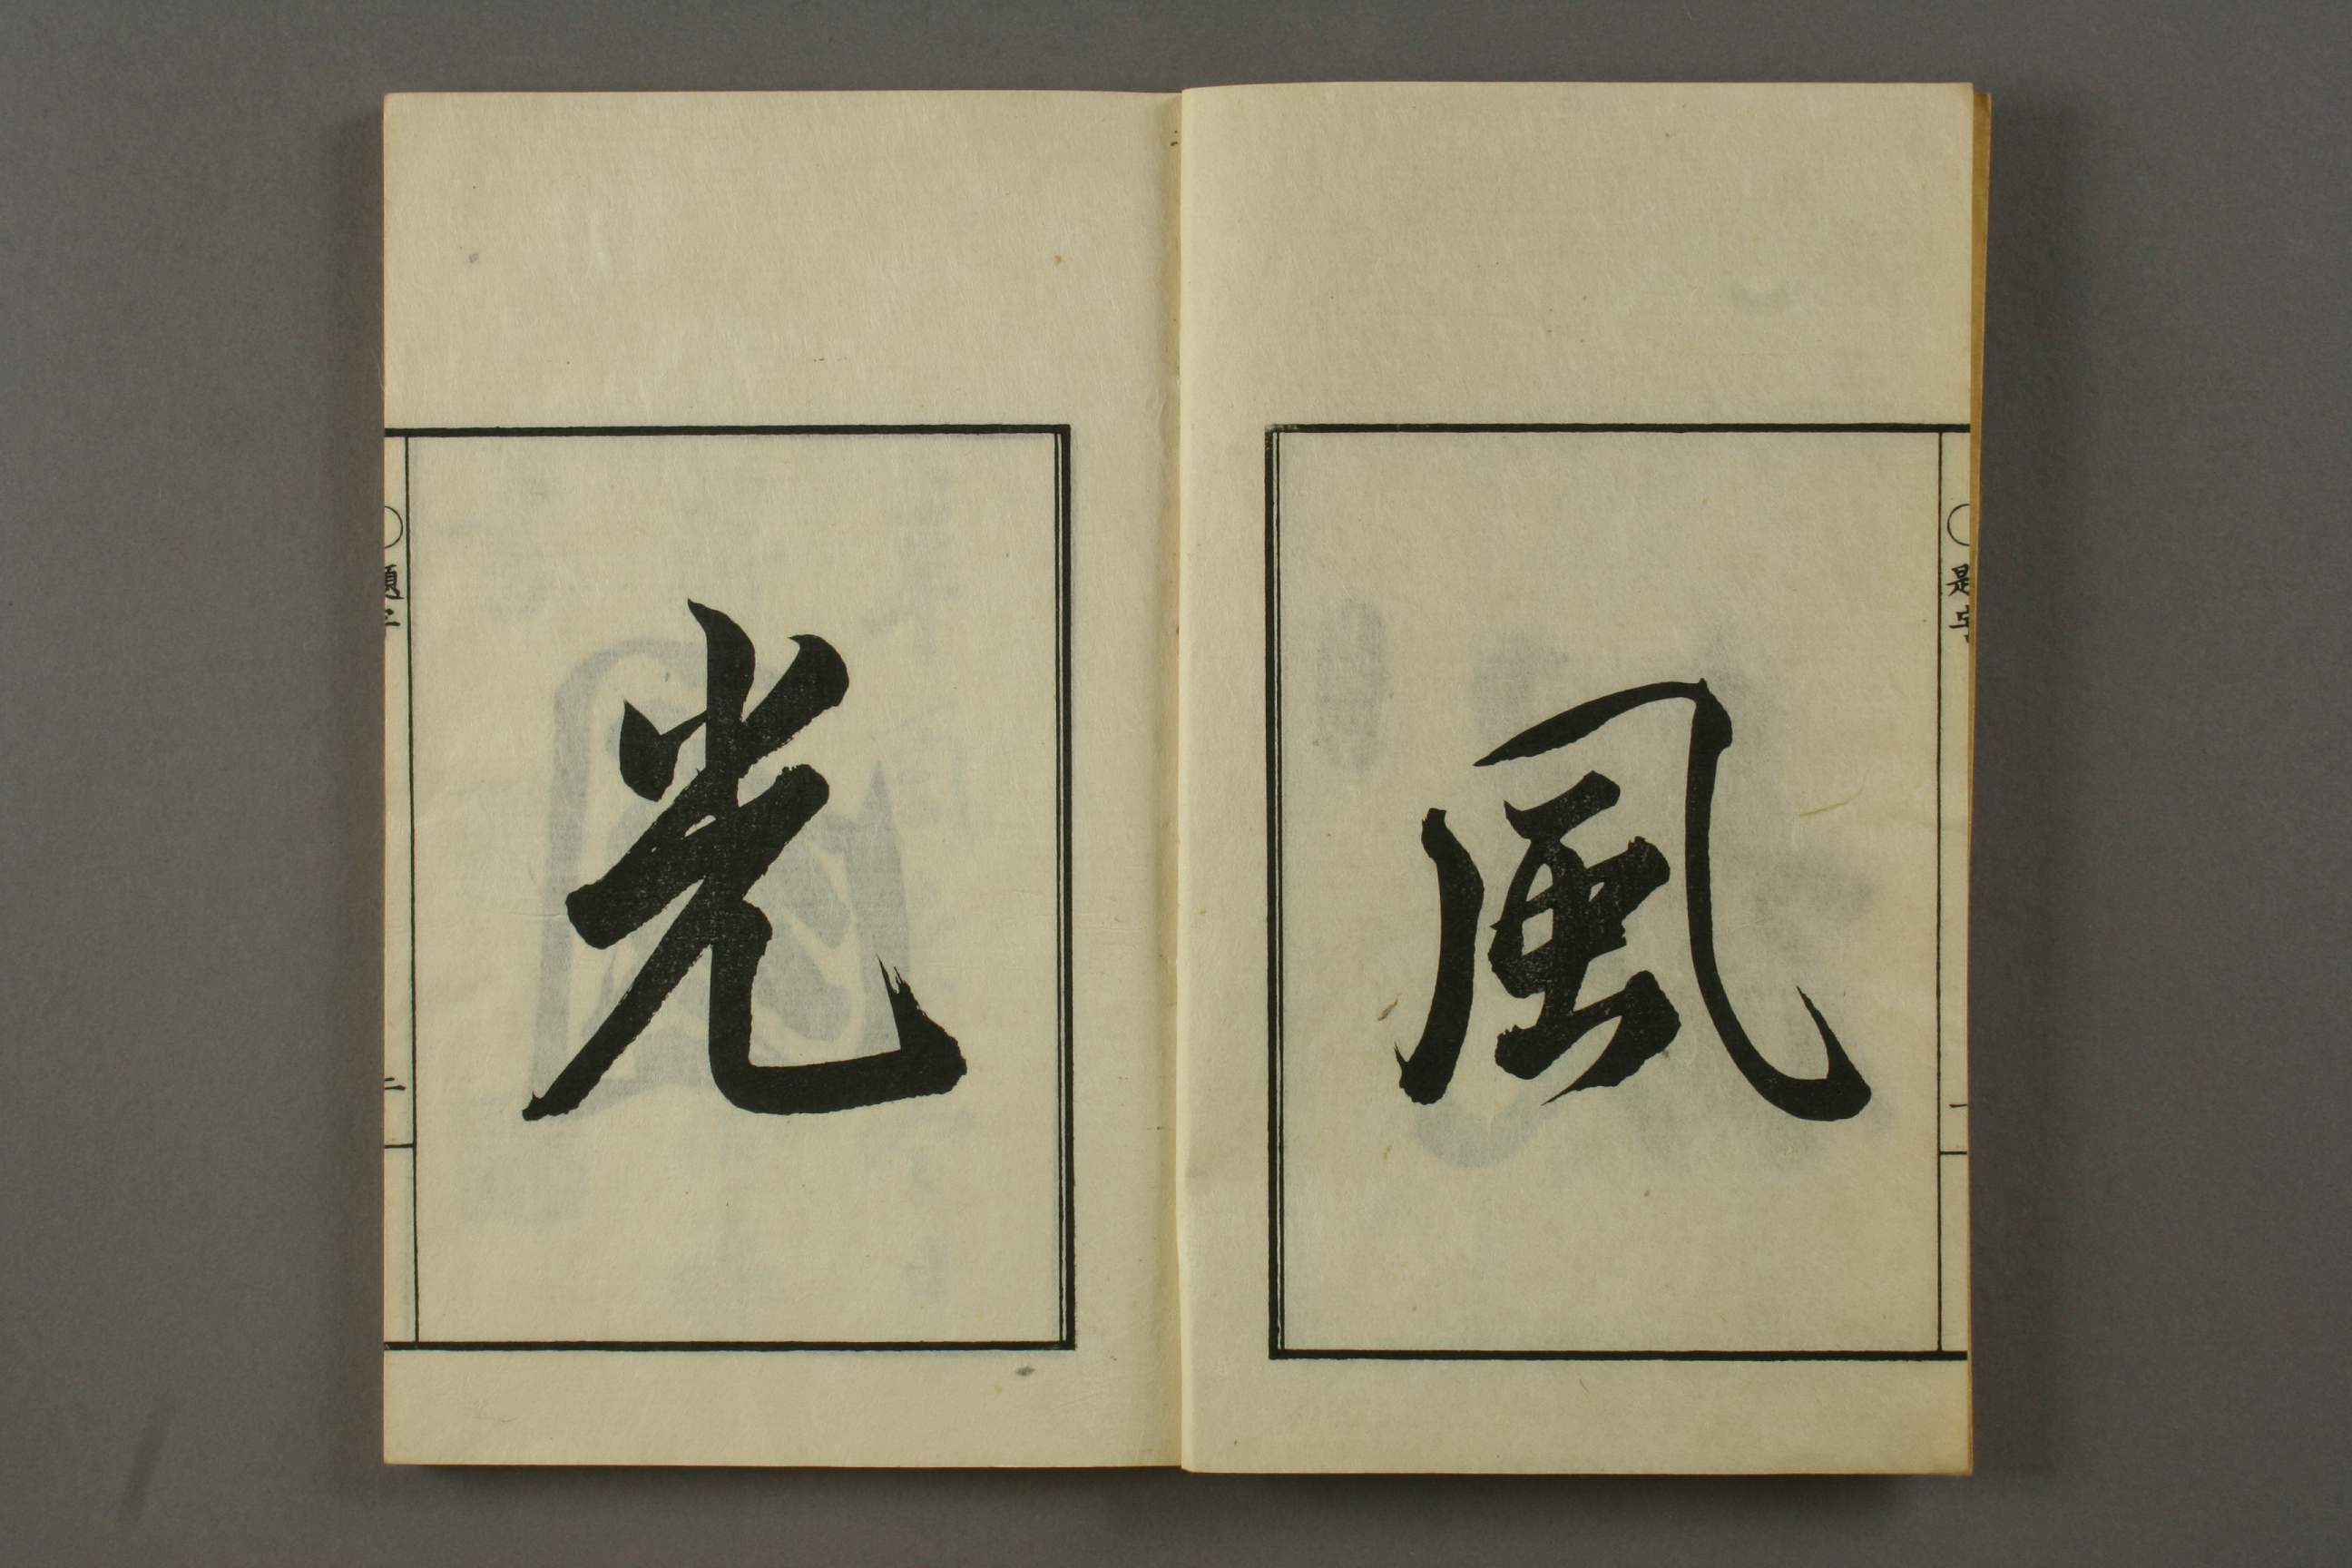 〇題字
一
風
光
〇題字
二